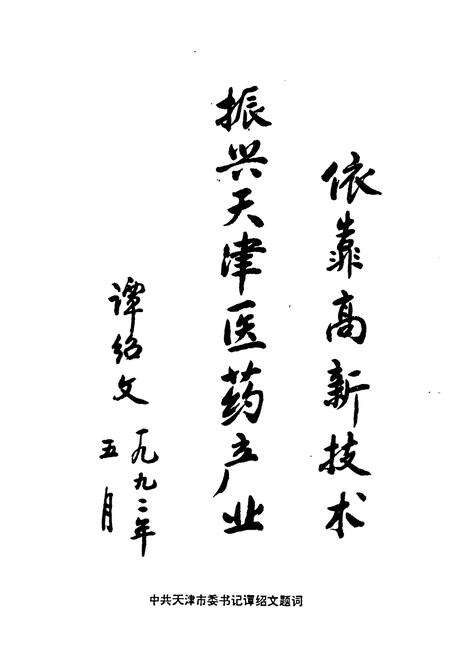 依靠高新技术
振兴天津医药产业
谭绍文
一九九二年
五月
中共天津市委书记谭绍文题词